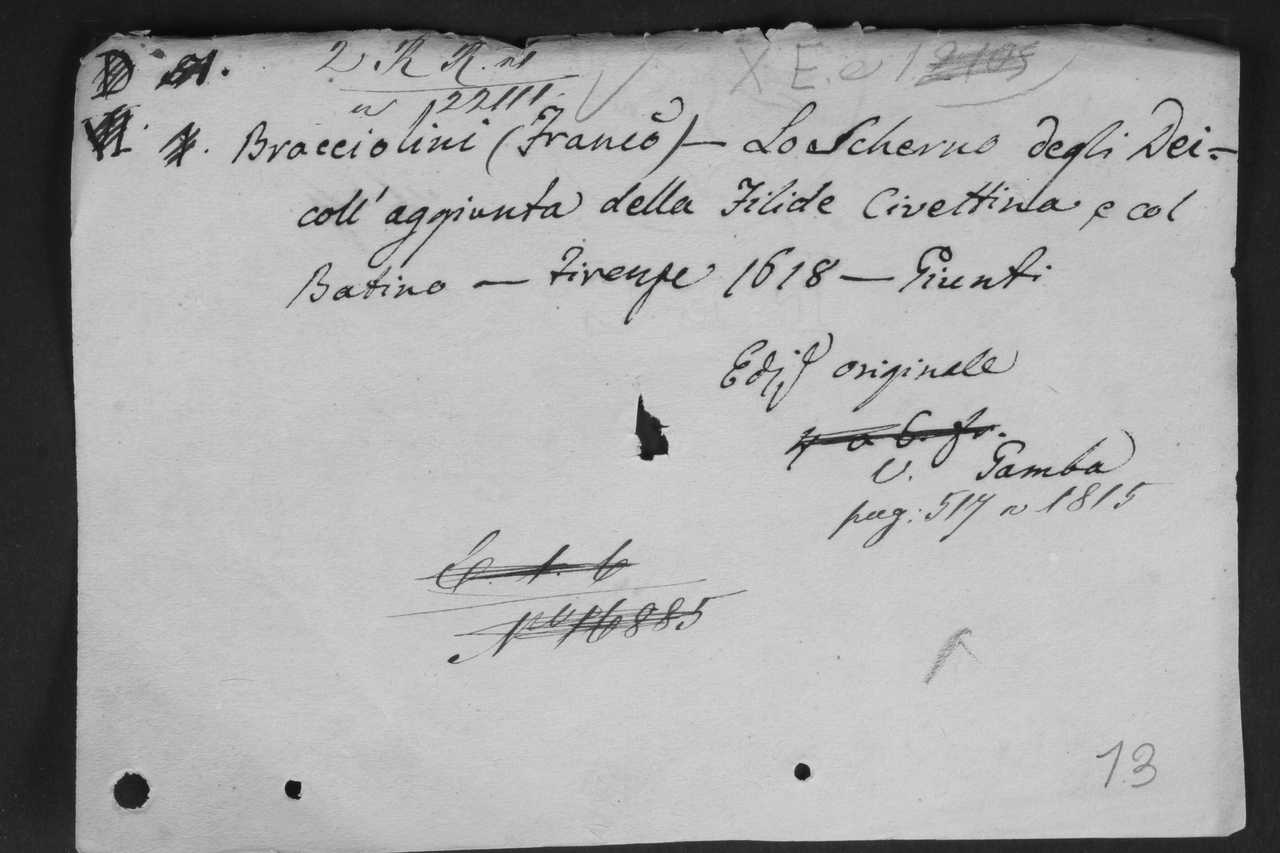 2. R R. n1
n 22111.
X E. e 1
Bracciolini (Franco) — Lo Scherno degli Dei -
coll' aggiunta della Filide Civettina e col
Batino — Firenze 1618 — Giunti
originale
4 a 6. fr.
V. Gamba
pag: 517 n 1815
C. 1. 6
No 16885
13